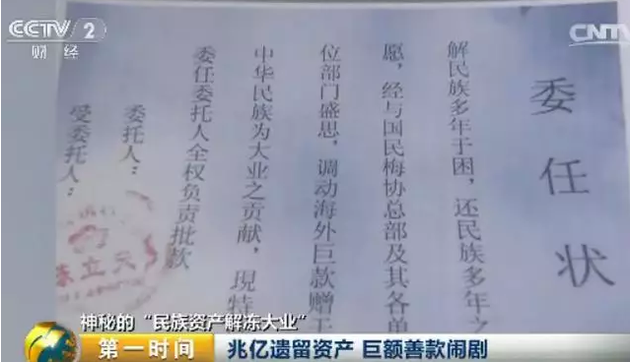 CCTV 2
财经
CNTV
委任状
解民族多年于困，还民族多年之
愿，经与国民梅协总部及其各单
位部门盛思，调动海外巨款赠于
中华民族为大业之贡献，現特
委任委托人全权负责批款
委托人：
受委托人：
神秘的“民族资产解冻大业”
第一时间
兆亿遗留资产 巨额善款闹剧